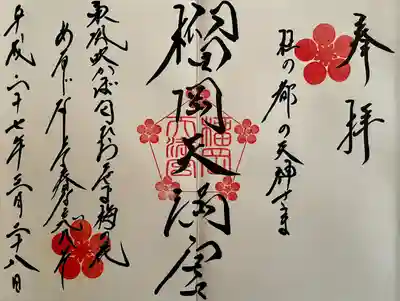 奉拝
杜の都の天神さま
榴岡天満宮
東風吹かば匂おこせよ梅の花
あるじなしとて春な忘れそ
平成二十七年三月二十八日